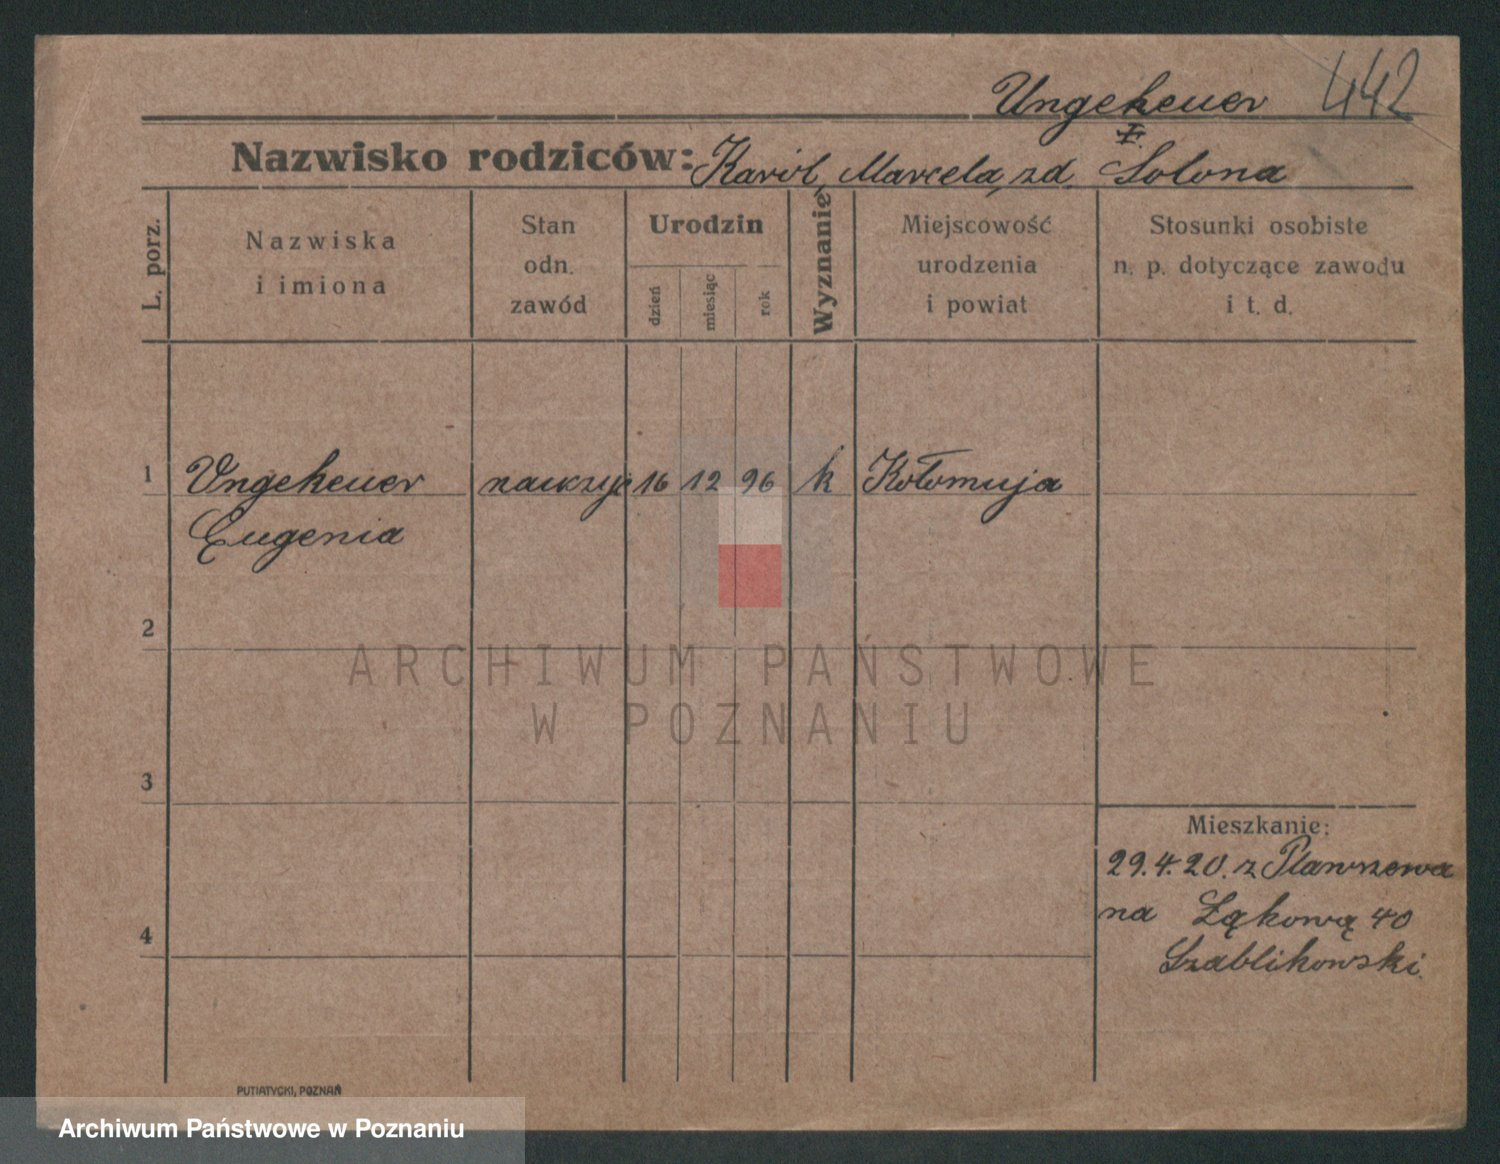 Ungeheuer 442
Nazwisko rodziców: Karol, Marcela, zd. Solona
L. porz.
Nazwiska
i imiona
Stan
odn.
zawód
Urodzin
dzień
miesiąc
rok
Wyznanie
Miejscowość
urodzenia
i powiat
Stosunki osobiste
n. p. dotyczące zawodu
i t. d.
1 Ungeheuer nauczyc 16 12 96 k Kołomyja
Eugenia
2
3
4
ARCHIWUM PAŃSTWOWE
W POZNANIU
Mieszkanie:
29.4.20. z
na Łąkową 40
Szablikowski.
PUTIATYCKI, POZNAŃ
Archiwum Państwowe w Poznaniu